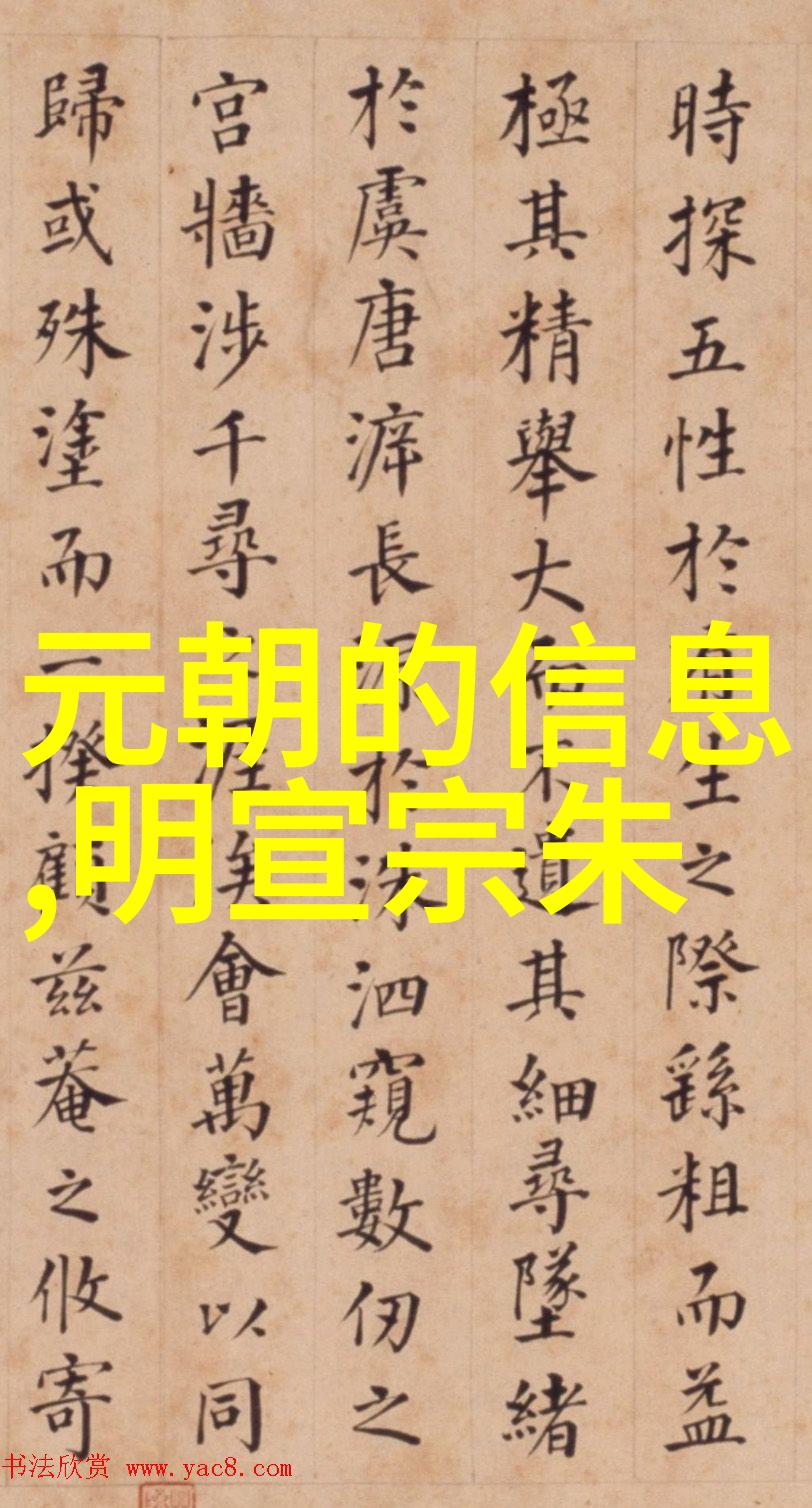 時探五性於有生之際繇粗而益
極其精舉大而不遺其細尋墜緒
於虞唐長源於洙泗窺數仞之
宮牆涉千尋之涯涘會萬變以同
歸或殊塗而一揆顧茲菴之攸寄
元朝的信息
,明宣宗朱
书法欣赏 www.yac8.com